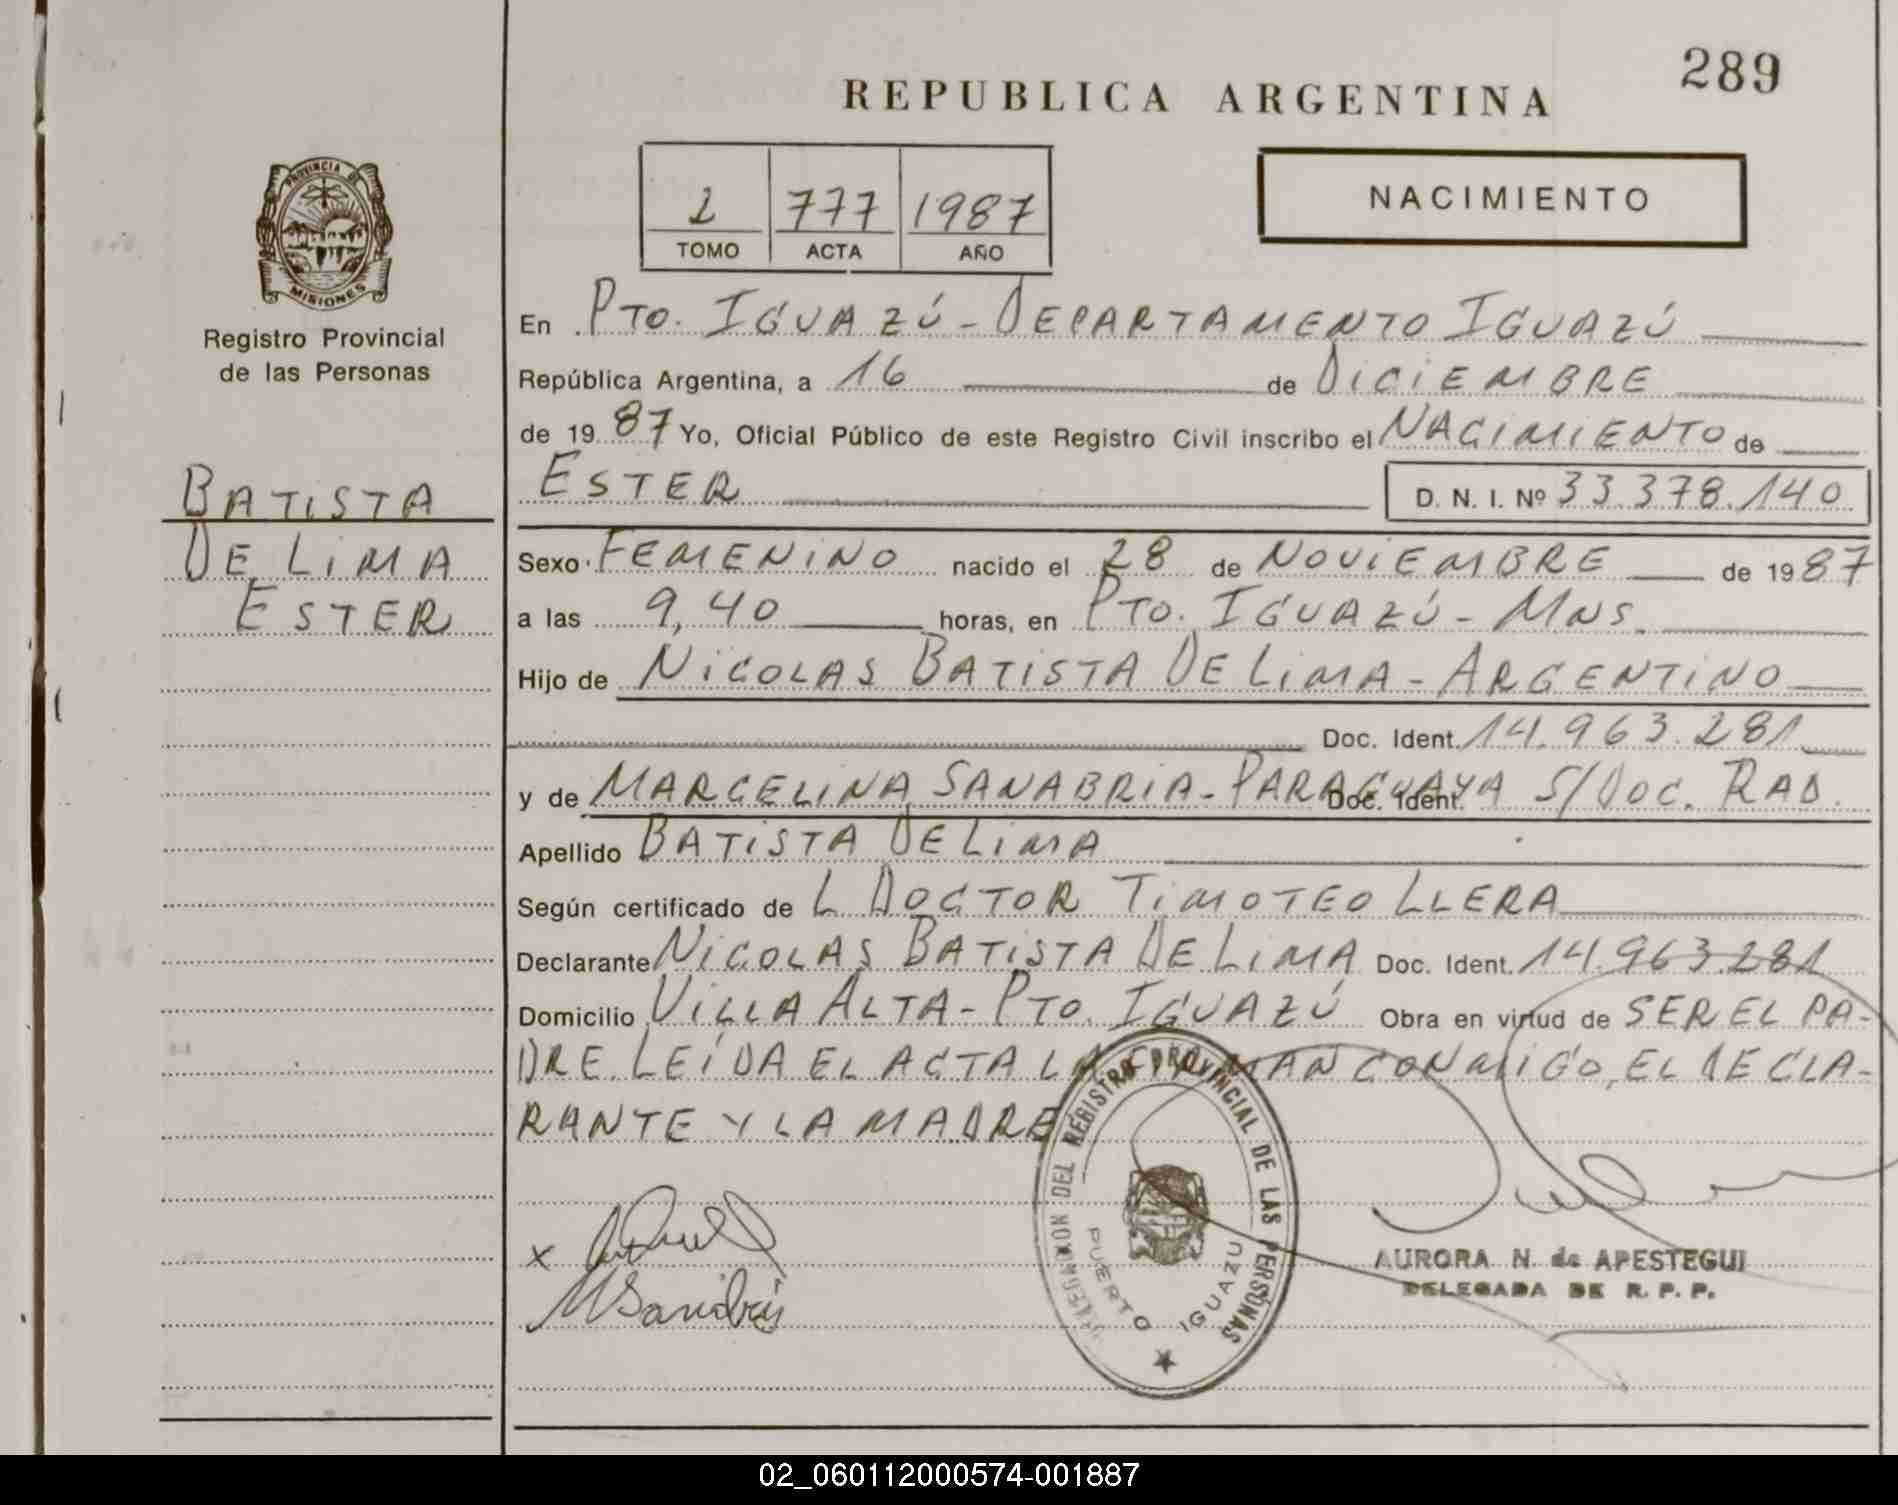 289
REPUBLICA ARGENTINA
PROVINCIA DE
MISIONES
Registro Provincial
de las Personas
2 777 1987
TOMO ACTA AÑO
NACIMIENTO
En PTO. IGUAZÚ - DEPARTAMENTO IGUAZÚ
República Argentina, a 16 de DICIEMBRE
de 1987 Yo, Oficial Público de este Registro Civil inscribo el NACIMIENTO de
ESTER D. N. I. Nº 33.378.140
BATISTA
DE LIMA
ESTER
Sexo FEMENINO nacido el 28 de NOVIEMBRE de 1987
a las 9,40 horas, en PTO. IGUAZÚ - MNS.
Hijo de NICOLAS BATISTA DE LIMA - ARGENTINO
Doc. Ident. 14.963.281
y de MARCELINA SANABRIA - PARAGUAYA Doc. Ident. S/DOC. RAD.
Apellido BATISTA DE LIMA
Según certificado de L DOCTOR TIMOTEO LLERA
Declarante NICOLAS BATISTA DE LIMA Doc. Ident. 14.963.281
Domicilio VILLA ALTA - PTO. IGUAZÚ Obra en virtud de SER EL PA-
DRE. LEÍDA EL ACTA LA FIRMAN CONMIGO, EL DECLA-
RANTE Y LA MADRE
DEL REGISTRO PROVINCIAL DE LAS PERSONAS
PUERTO IGUAZU
X
M Sanabria
AURORA N. de APESTEGUI
DELEGADA DE R. P. P.
02_060112000574-001887